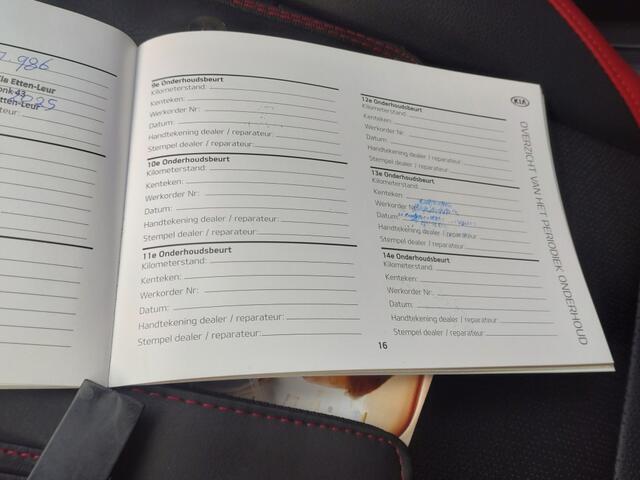 7.986
Kia Etten-Leur
onk 43
Etten-Leur
2025
9e Onderhoudsbeurt
Kilometerstand:
Kenteken:
Werkorder Nr:
Datum:
Handtekening dealer / reparateur:
Stempel dealer / reparateur:
10e Onderhoudsbeurt
Kilometerstand:
Kenteken:
Werkorder Nr:
Datum:
Handtekening dealer / reparateur:
Stempel dealer / reparateur:
11e Onderhoudsbeurt
Kilometerstand:
Kenteken:
Werkorder Nr:
Datum:
Handtekening dealer / reparateur:
Stempel dealer / reparateur:
12e Onderhoudsbeurt
Kilometerstand:
Kenteken:
Werkorder Nr:
Datum:
Handtekening dealer / reparateur:
Stempel dealer / reparateur:
13e Onderhoudsbeurt
Kilometerstand:
Kenteken:
Werkorder Nr:
Datum:
Handtekening dealer / reparateur:
Stempel dealer / reparateur:
14e Onderhoudsbeurt
Kilometerstand:
Kenteken:
Werkorder Nr:
Datum:
Handtekening dealer / reparateur:
Stempel dealer / reparateur:
KIA
OVERZICHT VAN HET PERIODIEK ONDERHOUD
16